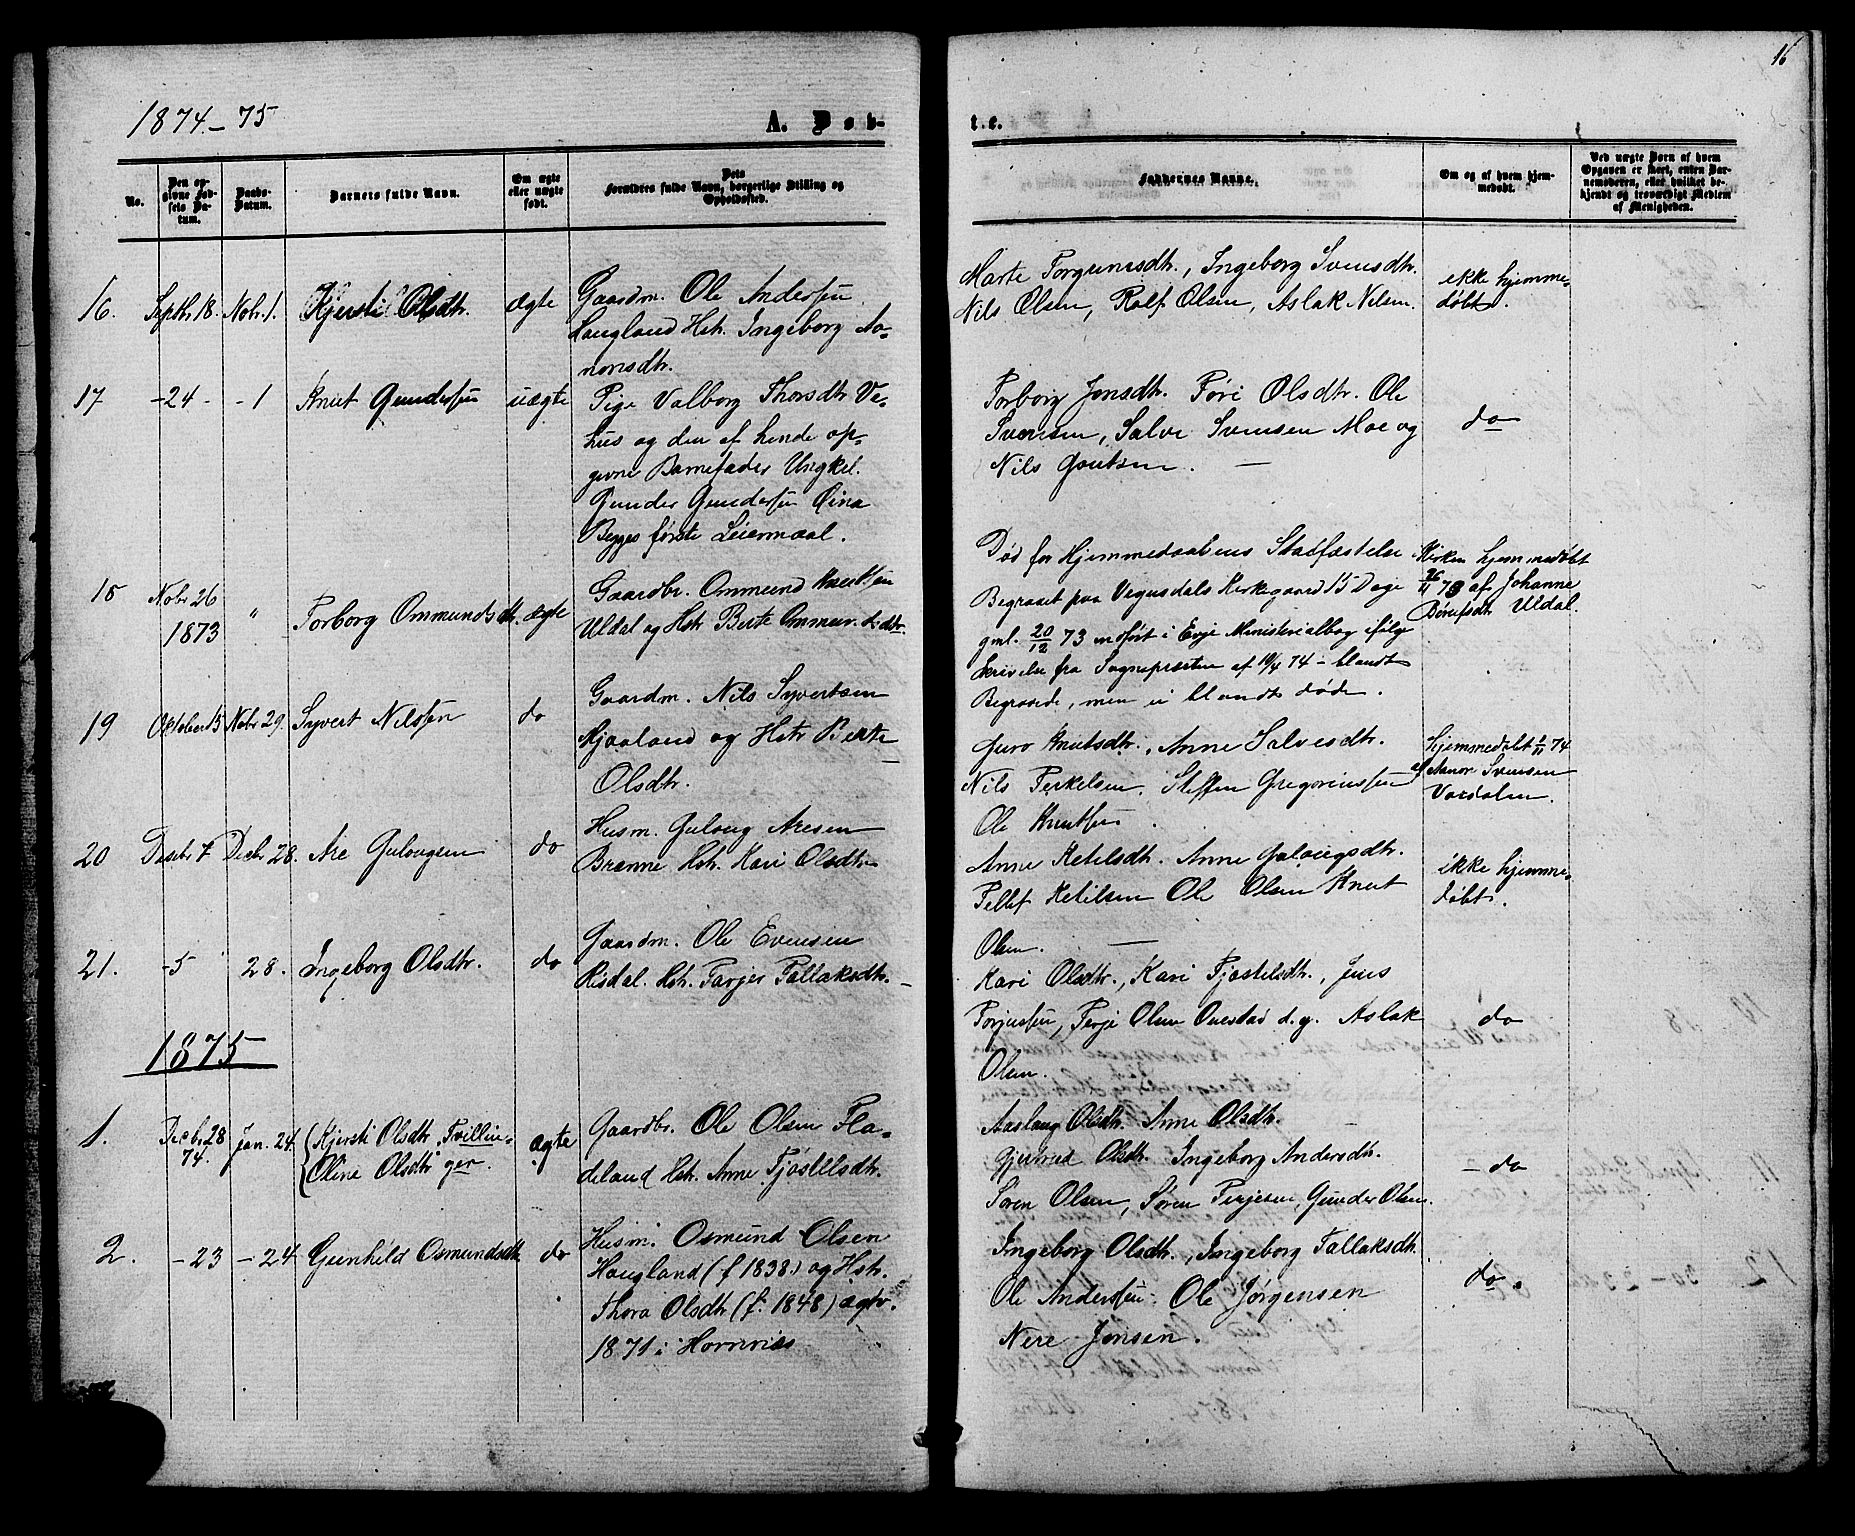 16
1874-75
A. Døb-
te.
No.
Den op-
givne Fød-
sels Da-
tum.
Daabs-
Datum.
Barnets fulde Navn.
Om ægte
eller uægte
født.
Dets
Forældres fulde Navn, borgerlige Stilling og
Opholdssted.
Faddernes Navne.
Om og af hvem hjem-
medøbt.
Ved uægte Børn af hvem
Opgaven er skeet, enten Bar-
nemoderen, eller hvilket be-
kjendt og troværdigt Medlem
af Menigheden.
16. Septbr. 18. Nobr. 1. Kjersti Olsdtr. ægte
Gaardm. Ole Andersen
Haugland Hstr. Ingeborg Aa-
nonsdtr.
Marte Torgrimsdtr., Ingeborg Svensdtr.
Nils Olsen, Rolf Olsen, Aslak Nilsen.
ikke hjemme-
døbt.
17 -24- -1 Knut Gundersen uægte
Pige Valborg Thorsdtr Ve-
hus og den af hende op-
givne Barnefader Ungkel.
Gunder Gundersen
Begges første Leiermaal.
Torborg Jensdtr. Tøri Olsdtr. Ole
Svensen, Salve Svensen Moe og
Nils Goutsen. —
do
18 Nobr 26
1873 " Torborg Ommundsdtr. ægte
Gaardbr. Ommund Knutsen
Uldal og Hstr Berte Ommunddtr.
Død før Hjemmedaabens Stadfæstelse
Begravet paa Vegusdals Kirkegaard 15 Dage
gml. 20/12 73 indført i Evje Ministerialbog ifølge
Skrivelse fra Sognepresten af 10/4 74 - blandt
Begravede, men ei blandt døde.
hjemmedøbt
26/11 73 af Johanne
Uldal.
19 Oktober 15 Nobr 29. Syvert Nilssen do
Gaardm. Nils Syvertsen
Mjaaland og Hstr Berte
Olsdtr.
Guro Knutsdtr., Anne Salvesdtr.
Nils Terkelsen, Steffen Gregoriussen
Ole Knutsen.
hjemmedøbt 1/11 74
af Aanon Svensen
20 Decbr 7 Decbr 28. Are Gulougsen do
Husm. Guloug Aresen
Brenne Hstr. Kari Olsdtr
Anne Ketilsdtr. Anne Gulougsdtr.
Tellef Ketilsen Ole Olsen Knut
Olsen. —
ikke hjemme-
døbt.
21. -5 28. Ingeborg Olsdtr. do
Gaardm. Ole Evensen
Risdal. Hstr. Targjer Tallaksdtr. -
Kari Olsdtr., Kari Fjøstelsdtr., Jens
Torjussen, Terje Olsen Ouestad d.y. Aslak
Olsen.
do
1875
1. Decbr 28
74. Jan. 24. Kjersti Olsdtr, Tvillin-
Oline Olsdtr ger. ægte
Gaardbr. Ole Olsen Fla-
deland Hstr. Anne Fjøstelsdtr.
Aaslaug Olsdtr. Anne Olsdtr.
Gjertrud Olsdtr. Ingeborg Andersdtr.
Søren Olsen, Søren Terjesen, Gunder Olsen.
- do
2. - 23 - 24 Gunhild Osmundsdtr do
Husm. Osmund Olsen
Haugland (f 1838) og Hstr.
Thora Olsdtr (f. 1848) ægtv.
1871 i Hornnæs
Ingeborg Olsdtr., Ingeborg Tallaksdtr.
Ole Andersen. Ole Jørgensen
Nere Jensen.
do.